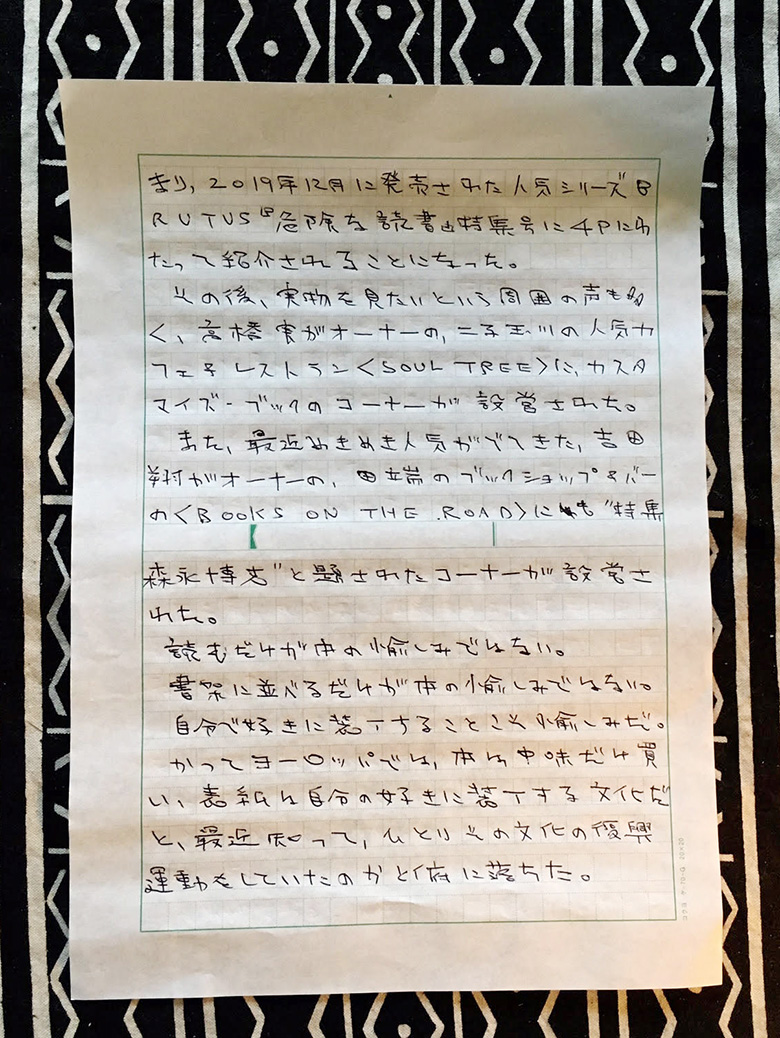 まり、2019年12月に発売された人気シリーズB
RUTUS『危険な読書』特集号に4Pにわ
たって紹介されることになった。
その後、実物を見たいという周囲の声も多
く、高橋実がオーナーの、二子玉川の人気カ
フェ&レストラン<SOUL TREE>に、カスタ
マイズ・ブックのコーナーが設営された。
また、最近めきめき人気がでてきた、吉田
がオーナーの、田端のブックショップ&バー
の<BOOKS ON THE ROAD>にも"特集
森永博志"と題されたコーナーが設営さ
れた。
読むだけが本の愉しみではない。
書架に並べるだけが本の愉しみではない。
自分で好きに装丁することこそ愉しみだ。
かってヨーロッパでは、本は中味だけ買
い、表紙は自分の好きに装丁する文化だ
と、最近知って、ひとりその文化の復興
運動をしていたのかと俯に落ちた。
20×20